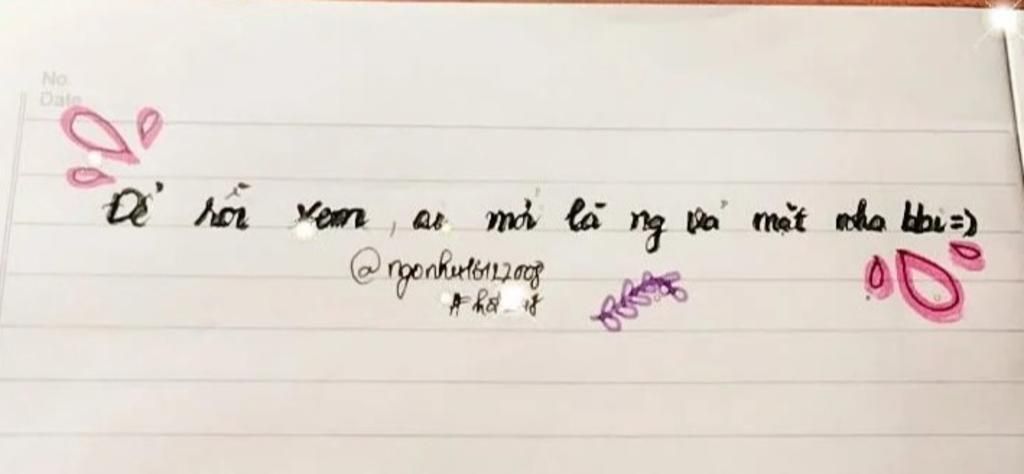 No.
Date
Để rồi xem, ai mới là ng vả mặt nha bbi =)
@ngonhu16122008